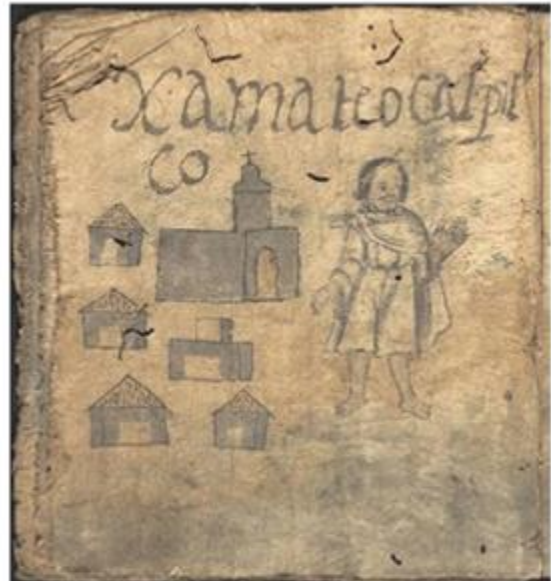 Xamateocalpil
co